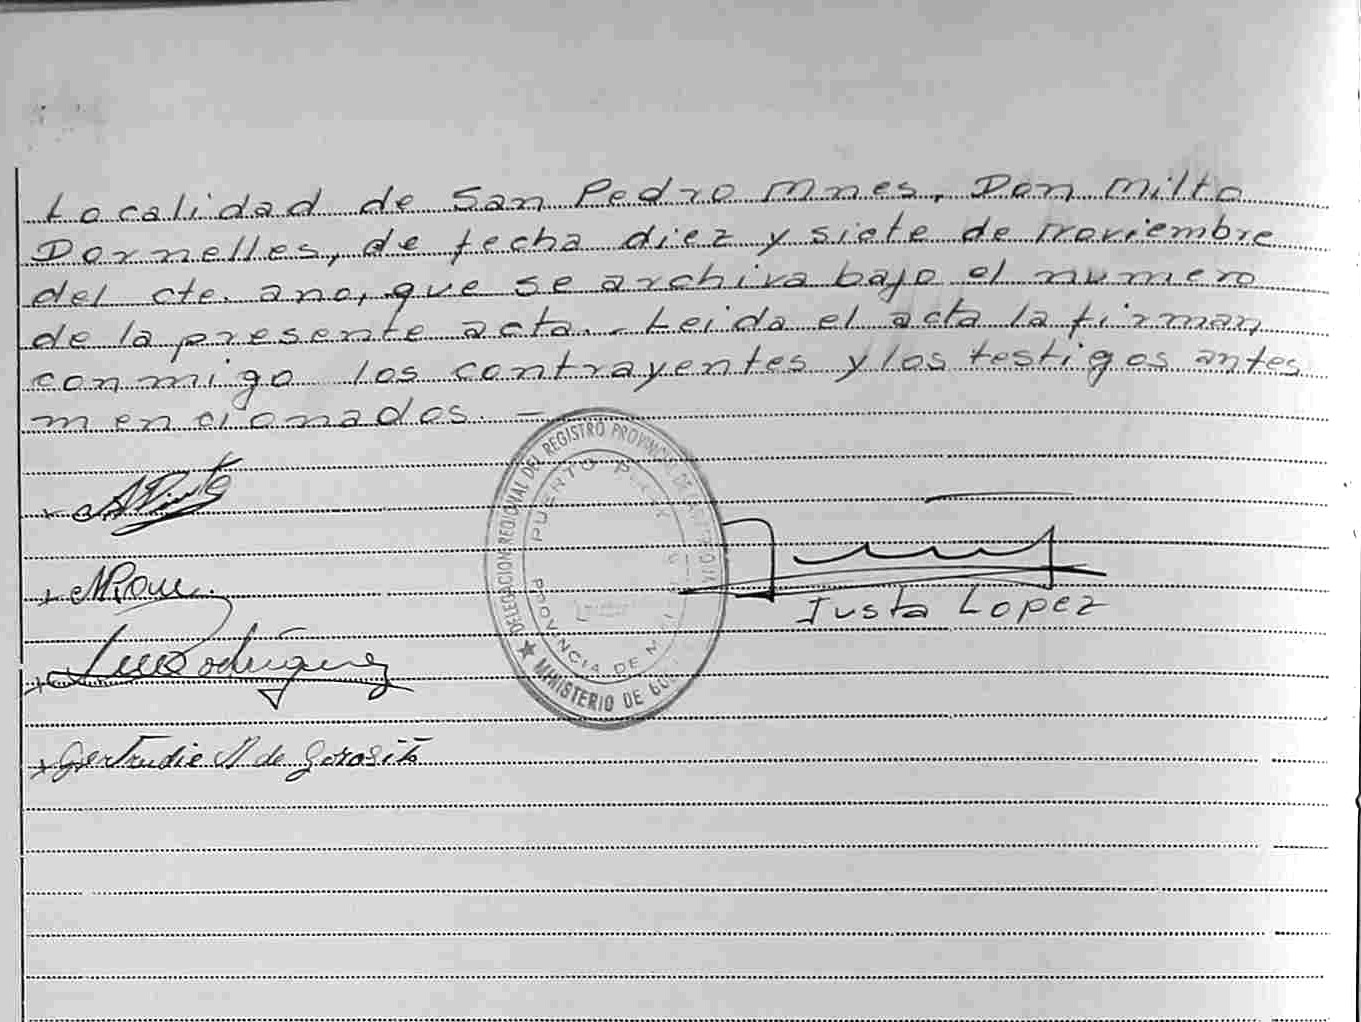 Localidad de San Pedro Mnes, Don Milto
Dornelles, de fecha diez y siete de noviembre
del cte. ano, que se archiva bajo el numero
de la presente acta.- Leida el acta la firman
conmigo los contrayentes y los testigos antes
mencionados. -
DELEGACION REGIONAL DEL REGISTRO PROVINCIAL DE
PUERTO
PROVINCIA DE
MINISTERIO DE
Justa Lopez
Luis Rodriguez
Gertrudie N de Gorosito